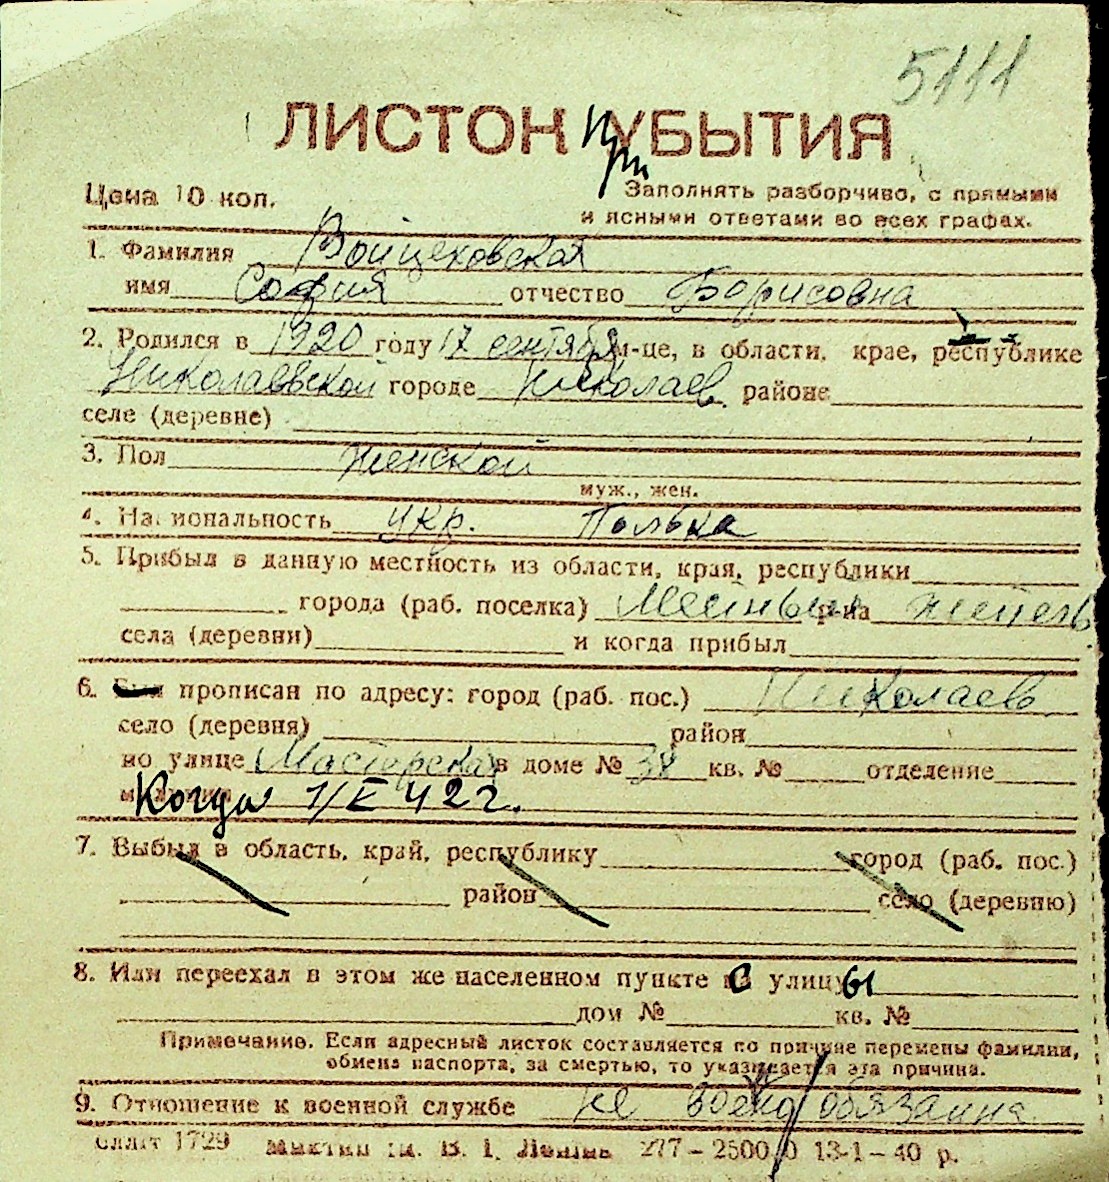 5111
ЛИСТОК При УБЫТИЯ
Цена 10 коп.
Заполнять разборчиво, с прямыми
и ясными ответами во всех графах.
1. Фамилия Войцеховская
имя София отчество Борисовна
2. Родился в 1920 году 17 сентября м-це, в области, крае, республике
Николаевской городе Николаев районе
селе (деревне)
3. Пол женской
муж., жен.
4. Национальность укр. Полька
5. Прибыл в данную местность из области, края, республики
города (раб. поселка) Местный р-на житель
села (деревни) и когда прибыл
6. Был прописан по адресу: город (раб. пос.) Николаев
село (деревня) район
по улице Мастерская в доме № 38 кв. № отделение
Когда 1/II 42 г.
7. Выбыл в область, край, республику город (раб. пос.)
район село (деревню)
8. Или переехал в этом же населенном пункте с улицы
дом № кв. №
Примечание. Если адресный листок составляется по причине перемены фамилии,
обмена паспорта, за смертью, то указывается эта причина.
9. Отношение к военной службе не военнообязанна
1729 им. В. І. Леніна 277 – 13-1 – 40 р.